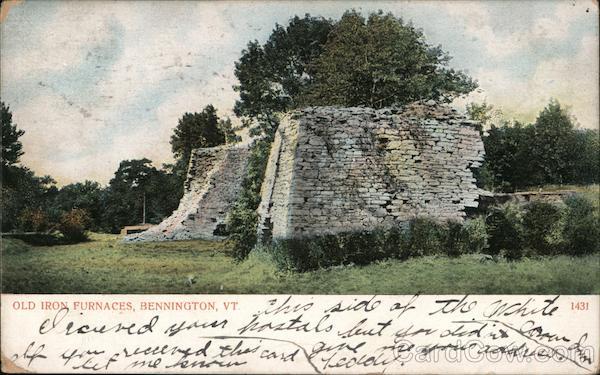 OLD IRON FURNACES, BENNINGTON, VT.
1431
This side of the White
I recieved your postals but you did
If you received this card give me your
let me know Teddie
CardCow.com